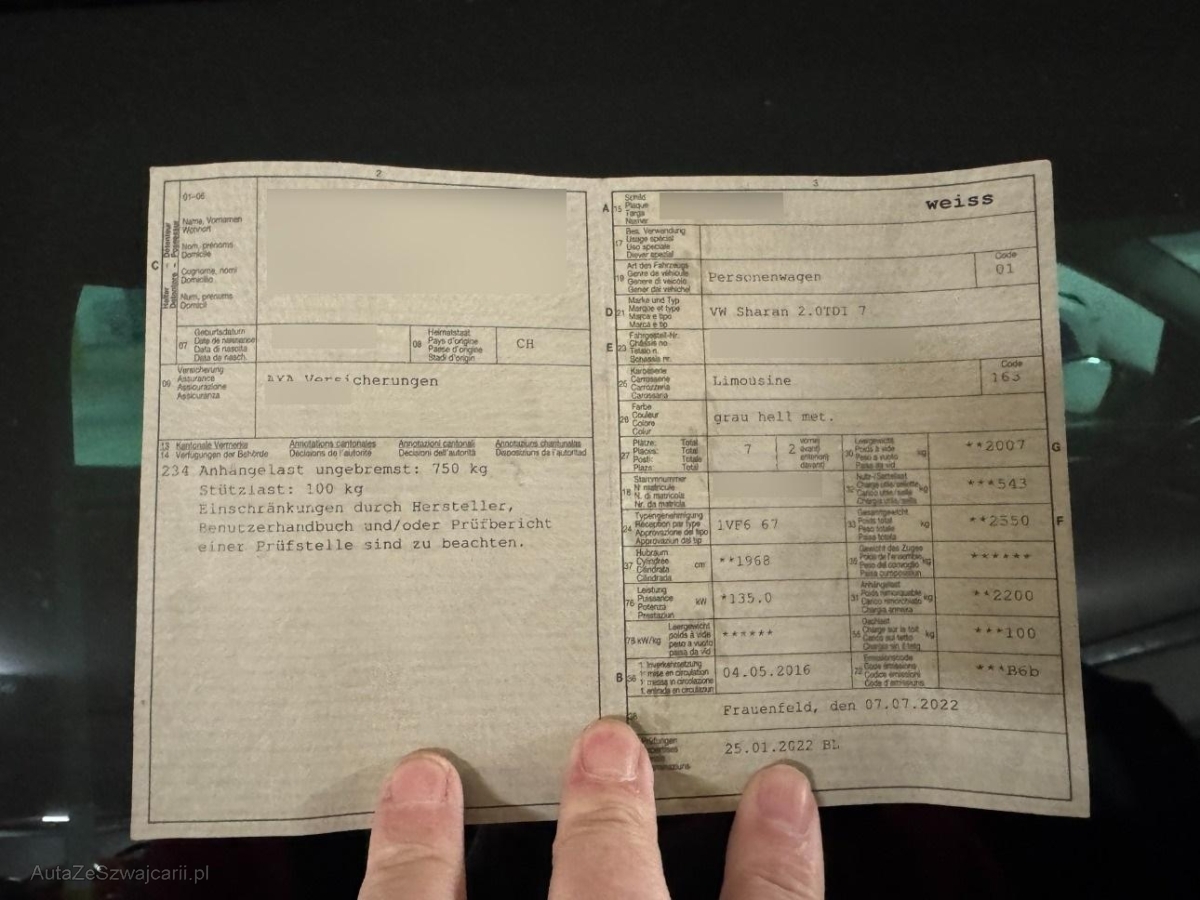 2
01-06
C
Halter Détenteur
Detentore Possessur
Name, Vornamen
Wohnort
Nom, prénoms
Domicile
Cugnome, nomi
Domicilio
Num, prenums
Domicil
07
Geburtsdatum
Date de naissance
Data di nascita
Data da nasch.
08
Heimatstaat
Pays d'origine
Paese d'origine
Stadi d'origin
CH
09
Versicherung
Assurance
Assicurazione
Assicuranza
AXA Versicherungen
13
14
Kantonale Vermerke
Verfügungen der Behörde
Annotations cantonales
Décisions de l'autorité
Annotazioni cantonali
Decisioni dell'autorità
Annotaziuns chantunalas
Disposiziuns da l'autoritad
234 Anhängelast ungebremst: 750 kg
Stützlast: 100 kg
Einschränkungen durch Hersteller,
Benutzerhandbuch und/oder Prüfbericht
einer Prüfstelle sind zu beachten.
3
A 15
Schild
Plaque
Targa
Numer
weiss
17
Bes. Verwendung
Usage spécial
Uso speciale
Diever spezial
19
Art des Fahrzeugs
Genre de véhicule
Genere di veicolo
Gener dal vehichel
Personenwagen
Code
01
D 21
Marke und Typ
Marque et type
Marca e tipo
Marca e tip
VW Sharan 2.0TDI 7
E 23
Fahrgestell-Nr.
Châssis no
Telaio n.
Schassis nr.
25
Karosserie
Carrosserie
Carrozzeria
Carossaria
Limousine
Code
163
26
Farbe
Couleur
Colore
Colur
grau hell met.
27
Plätze: Total
Places: Total
Posti: Totale
Plazs: Total
7
2
vorne
avant
anteriori
davant
30
Leergewicht
Poids à vide
Peso a vuoto
Paisa da vid
kg
**2007
G
18
Stammnummer
N° matricule
N. di matricola
Nr. da matricla
32
Nutz-/Sattellast
kg
***543
24
Typengenehmigung
Réception par type
Approvazione del tipo
Approvaziun dal tip
1VF6 67
33
Gesamtgewicht
Poids total
Peso totale
Paisa totala
kg
**2550
F
37
Hubraum
Cylindrée
Cilindrata
Cilindrada
cm
**1968
35
Gewicht des Zuges
Poids de l'ensemble
Peso del convoglio
Paisa cumposiziun
kg
******
76
Leistung
Puissance
Potenza
Prestaziun
kW
*135.0
31
Anhängelast
Poids remorquable
Carico rimorchiato
Chargia annexa
kg
**2200
78 kW/kg
Leergewicht
poids à vide
peso a vuoto
paisa da vid
******
55
Dachlast
Charge sur le toit
Carico sul tetto
kg
***100
B 36
1. Inverkehrsetzung
1re mise en circulation
1. messa in circolazione
1. entrada en circulaziun
04.05.2016
72
Emissionscode
Code émissions
Codice emissioni
Code d'emissiuns
***B6b
Frauenfeld, den 07.07.2022
Prüfungen
25.01.2022 BL
AutaZeSzwajcarii.pl